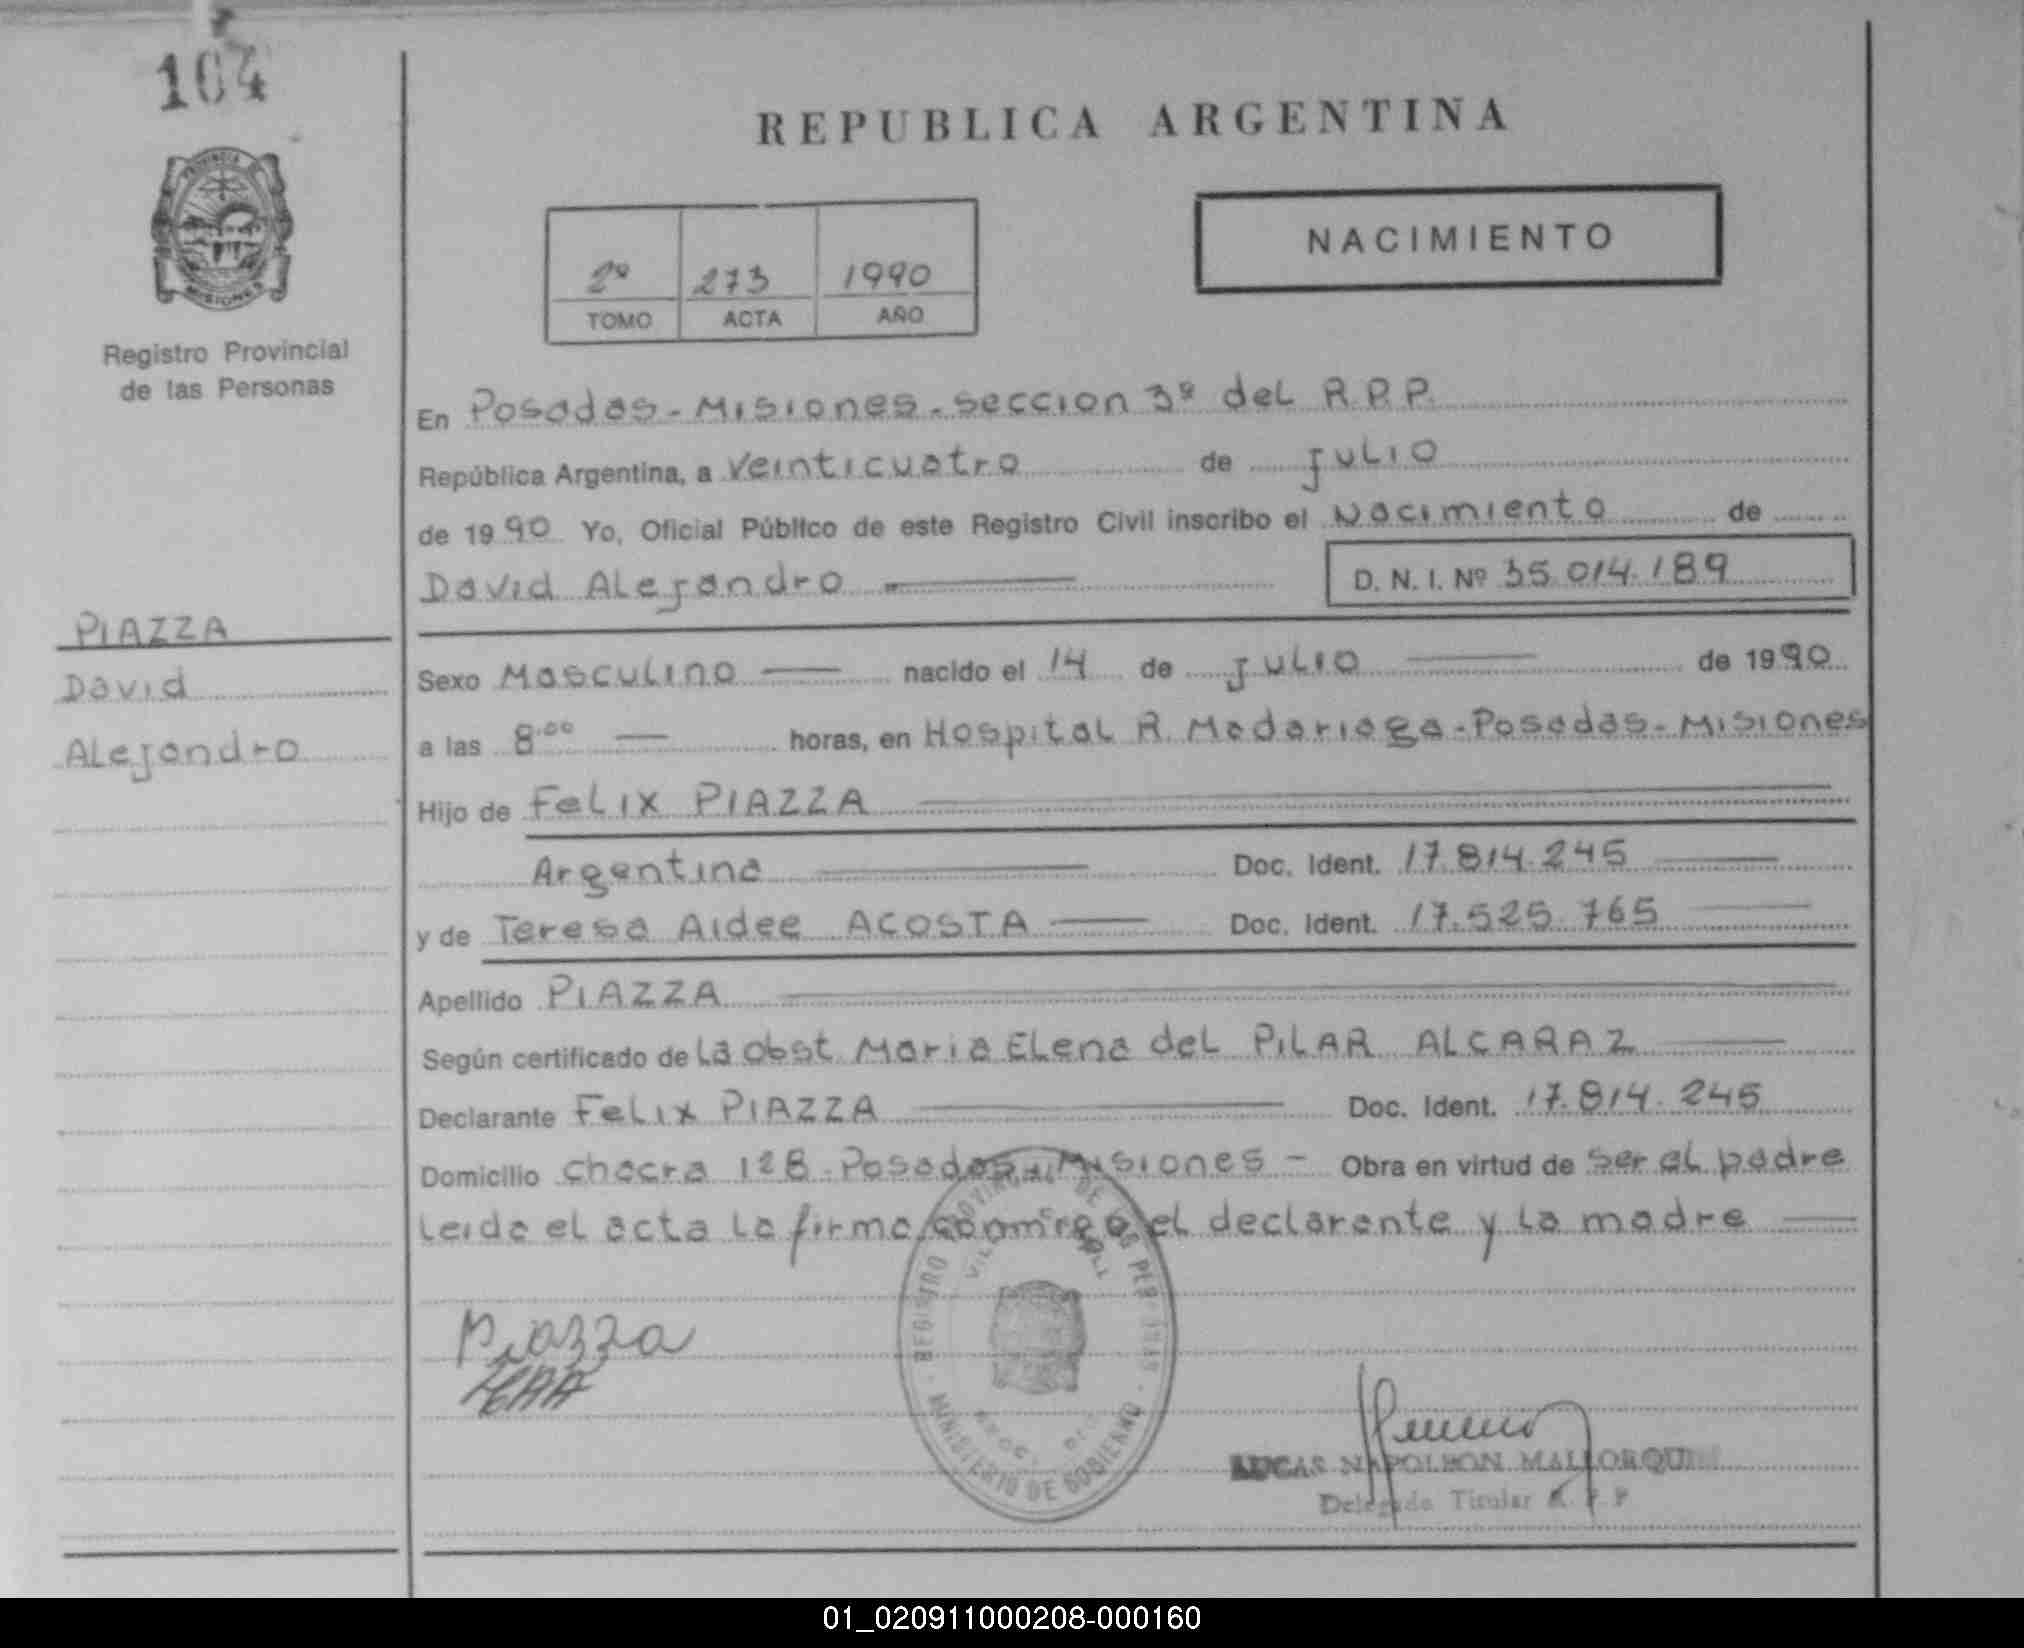 104
PROVINCIA
MISIONES
Registro Provincial
de las Personas
PIAZZA
David
Alejandro
REPUBLICA ARGENTINA
2º 273 1990
TOMO ACTA AÑO
NACIMIENTO
En Posadas - Misiones - seccion 3ª del R.P.P.
República Argentina, a Veinticuatro de julio
de 1990 Yo, Oficial Público de este Registro Civil inscribo el Nacimiento de
David Alejandro D. N. I. Nº 35.014.189
Sexo Masculino nacido el 14 de julio de 1990
a las 8.00 horas, en Hospital R. Madariaga - Posadas - Misiones
Hijo de Felix PIAZZA
Argentina Doc. Ident. 17.814.245
y de Teresa Aidee ACOSTA Doc. Ident. 17.525.765
Apellido PIAZZA
Según certificado de La obst Maria Elena del PILAR ALCARAZ
Declarante Felix PIAZZA Doc. Ident. 17.814.245
Domicilio chacra 128 - Posadas - Misiones - Obra en virtud de ser el padre
Leida el acta la firma conmigo el declarante y la madre
REGISTRO PROVINCIAL DE LAS PERSONAS
MINISTERIO DE GOBIERNO
Piazza
LUCAS NAPOLEON MALLORQUIN
Delegado Titular R. P. P
01_020911000208-000160